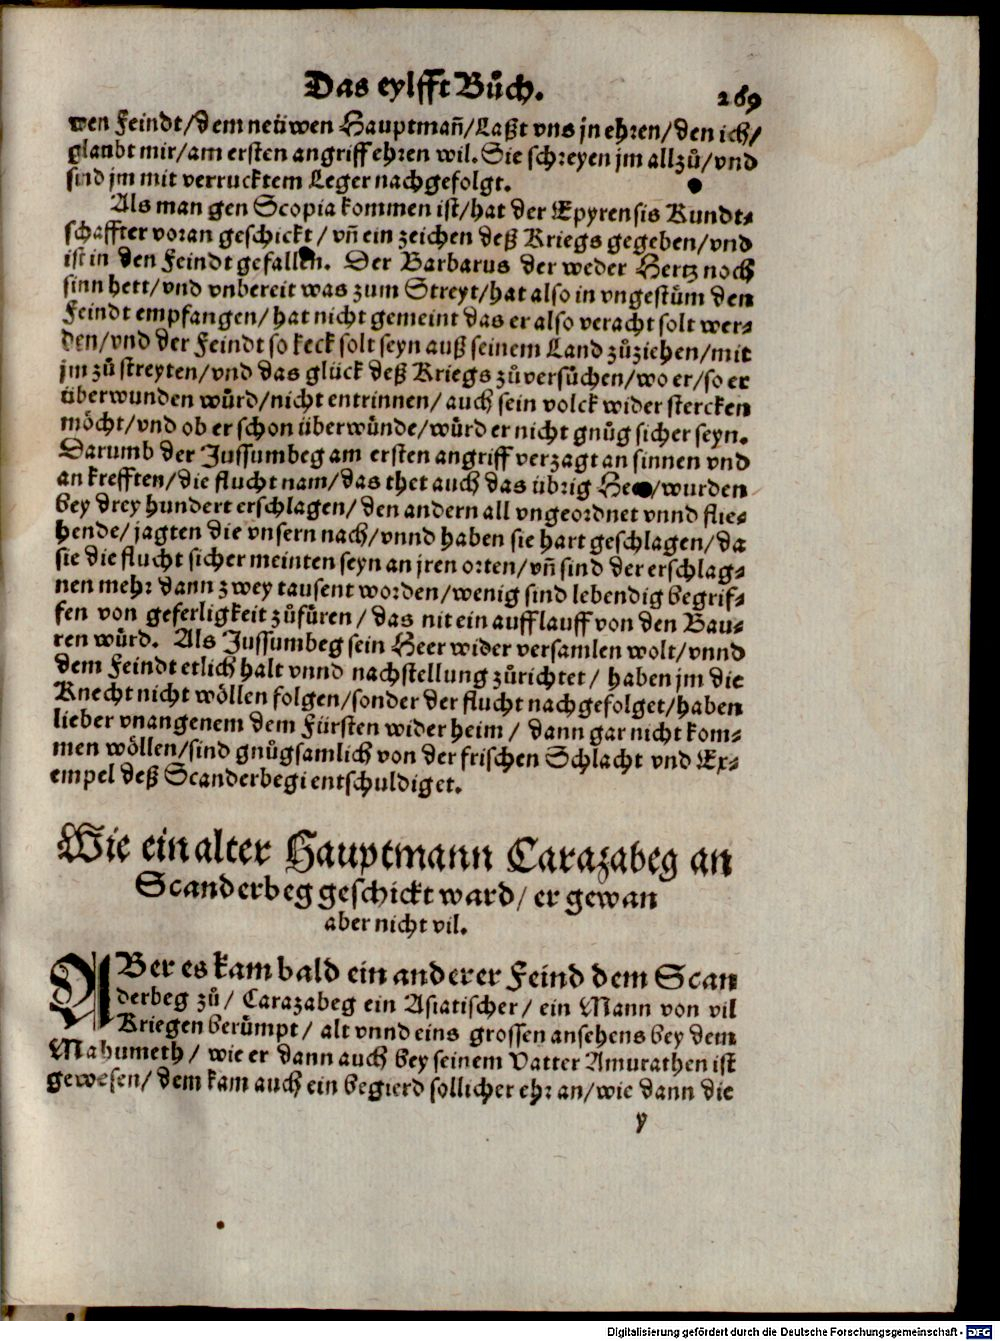 Das eylfft Bůch.
269
wen Feindt/dem neüwen Hauptmañ/Laßt vns jn ehren/den ich/
glaubt mir/am ersten angriff ehren wil. Sie schreyen jm allzů/vnd
sind jm mit verrucktem Leger nachgefolgt.
Als man gen Scopia kommen ist/hat der Epyrensis Kundt⸗
schaffter voran geschickt/vñ ein zeichen deß Kriegs gegeben/vnd
ist in den Feindt gefallen. Der Barbarus der weder Hertz noch
sinn hett/vnd vnbereit was zum Streyt/hat also in vngestům den
Feindt empfangen/hat nicht gemeint das er also veracht solt wer⸗
den/vnd der Feindt so keck solt seyn auß seinem Land zůziehen/mit
jm zů streyten/vnd das glück deß Kriegs zůversůchen/wo er/so er
überwunden würd/nicht entrinnen/auch sein volck wider stercken
möcht/vnd ob er schon überwünde/würd er nicht gnůg sicher seyn.
Darumb der Jussumbeg am ersten angriff verzagt an sinnen vnd
an krefften/die flucht nam/das thet auch das übrig /wurden
bey drey hundert erschlagen/den andern all vngeordnet vnnd flie⸗
hende/jagten die vnsern nach/vnnd haben sie hart geschlagen/da
sie die flucht sicher meinten seyn an jren orten/vñ sind der erschlag⸗
nen mehr dann zwey tausent worden/wenig sind lebendig begrif⸗
fen von geferligkeit zůfüren/das nit ein aufflauff von den Bau⸗
ren würd. Als Jussumbeg sein Heer wider versamlen wolt/vnnd
dem Feindt etlich halt vnnd nachstellung zůrichtet/haben jm die
Knecht nicht wöllen folgen/sonder der flucht nachgefolget/haben
lieber vnangenem dem Fürsten wider heim/dann gar nicht kom⸗
men wöllen/sind gnůgsamlich von der frischen Schlacht vnd Ex⸗
empel deß Scanderbegi entschuldiget.
Wie ein alter Hauptmann Carazabeg an
Scanderbeg geschickt ward/er gewan
aber nicht vil.
ABer es kam bald ein anderer Feind dem Scan
derbeg zů/Carazabeg ein Asiatischer/ein Mann von vil
Kriegen berůmpt/alt vnnd eins grossen ansehens bey dem
Mahumeth/wie er dann auch bey seinem Vatter Amurathen ist
gewesen/dem kam auch ein begierd sollicher ehr an/wie dann die
y
Digitalisierung gefördert durch die Deutsche Forschungsgemeinschaft - DFG